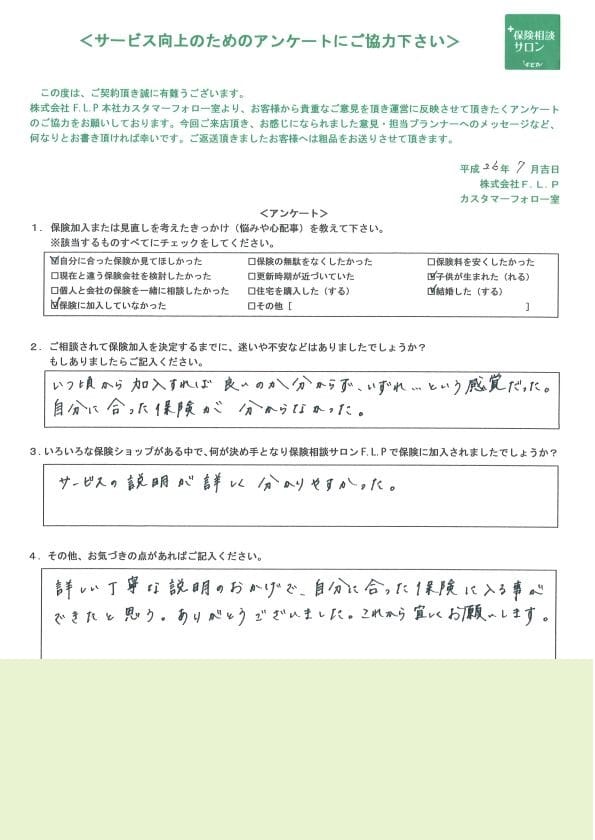 <サービス向上のためのアンケートにご協力下さい>
+保険相談
サロン
この度は、ご契約頂き誠に有難うございます。
株式会社F.L.P本社カスタマーフォロー室より、お客様から貴重なご意見を頂き運営に反映させて頂きたくアンケート
のご協力をお願いしております。今回ご来店頂き、お感じになられました意見・担当プランナーへのメッセージなど、
何なりとお書き頂ければ幸いです。ご返送頂きましたお客様へは粗品をお送りさせて頂きます。
平成26年 7月吉日
株式会社F.L.P
カスタマーフォロー室
<アンケート>
1. 保険加入または見直しを考えたきっかけ（悩みや心配事）を教えて下さい。
※該当するものすべてにチェックをしてください。
☑自分に合った保険か見てほしかった □保険の無駄をなくしたかった □保険料を安くしたかった
□現在と違う保険会社を検討したかった □更新時期が近づいていた ☑子供が生まれた（れる）
□個人と会社の保険を一緒に相談したかった □住宅を購入した（する） ☑結婚した（する）
☑保険に加入していなかった □その他 [ ]
2. ご相談されて保険加入を決定するまでに、迷いや不安などはありましたでしょうか？
もしありましたらご記入ください。
いつ頃から加入すれば良いのか分からず、いずれ…という感覚だった。
自分に合った保険が分からなかった。
3. いろいろな保険ショップがある中で、何が決め手となり保険相談サロンF.L.Pで保険に加入されましたでしょうか？
サービスの説明が詳しく分かりやすかった。
4. その他、お気づきの点があればご記入ください。
詳しい丁寧な説明のおかげで、自分に合った保険に入る事が
できたと思う。ありがとうございました。これから宜しくお願いします。